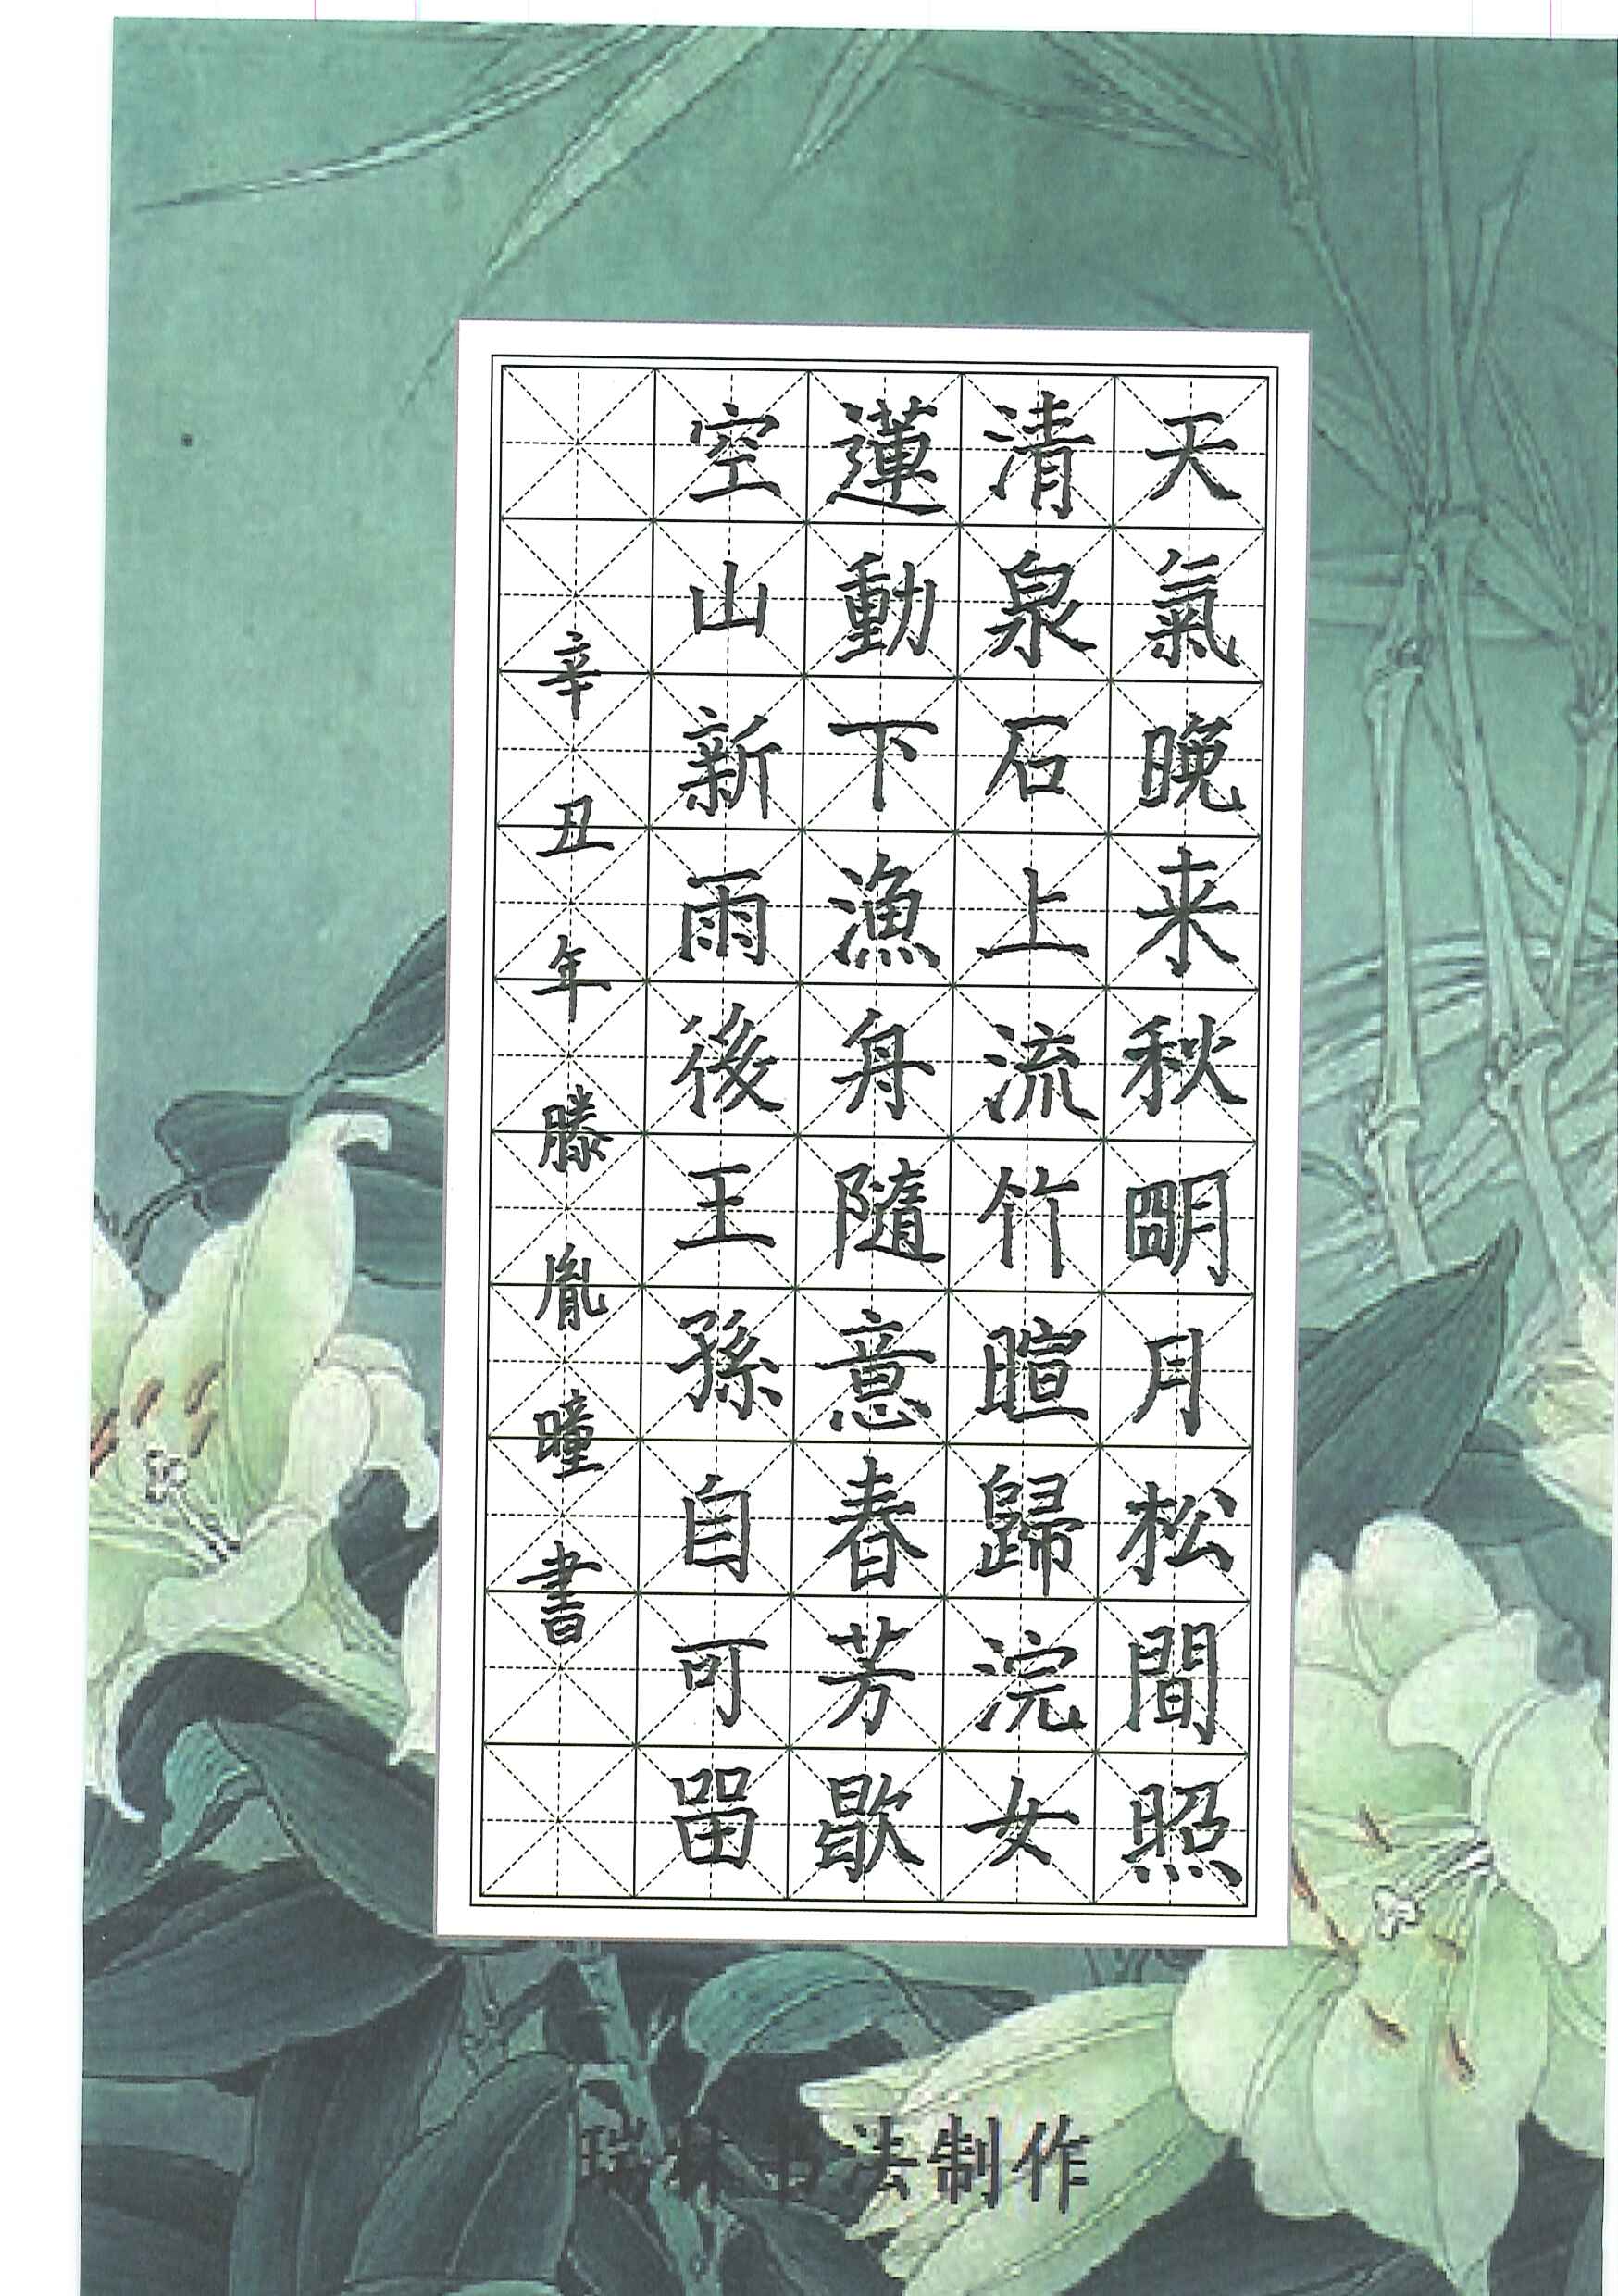 天氣晚来秋朙月松間照
清泉石上流竹暄歸浣女
蓮動下漁舟隨意春芳歇
空山新雨後王孫自可留
辛丑年滕胤曈書
瑞林书法制作